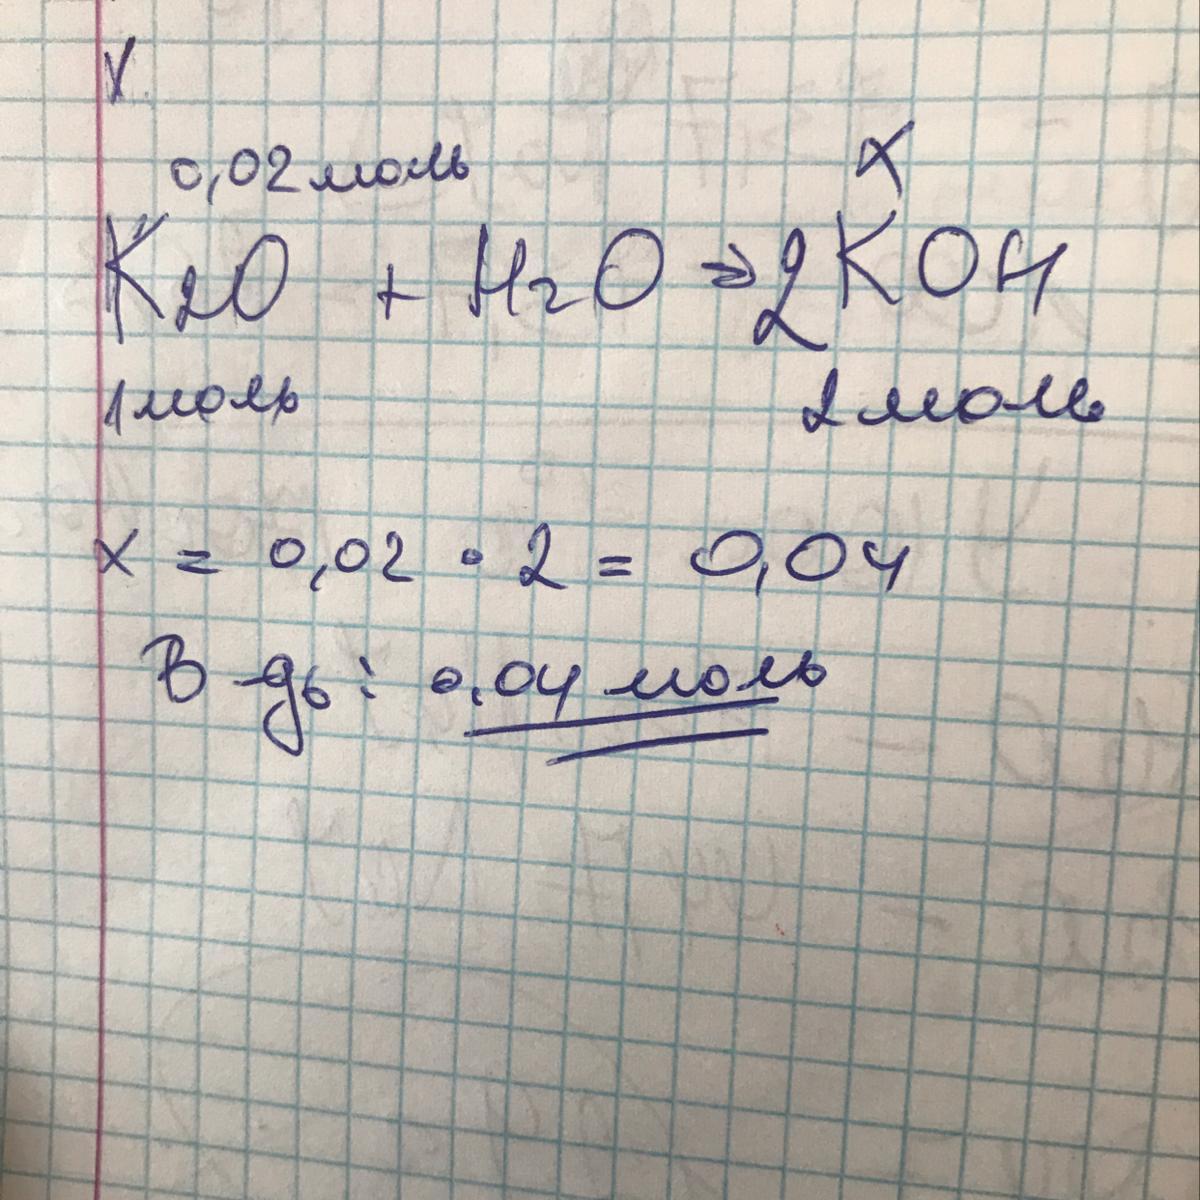 0,02 моль x
K2O + H2O → 2KOH
1 моль 2 моль
x = 0,02 · 2 = 0,04
В-дь: 0,04 моль